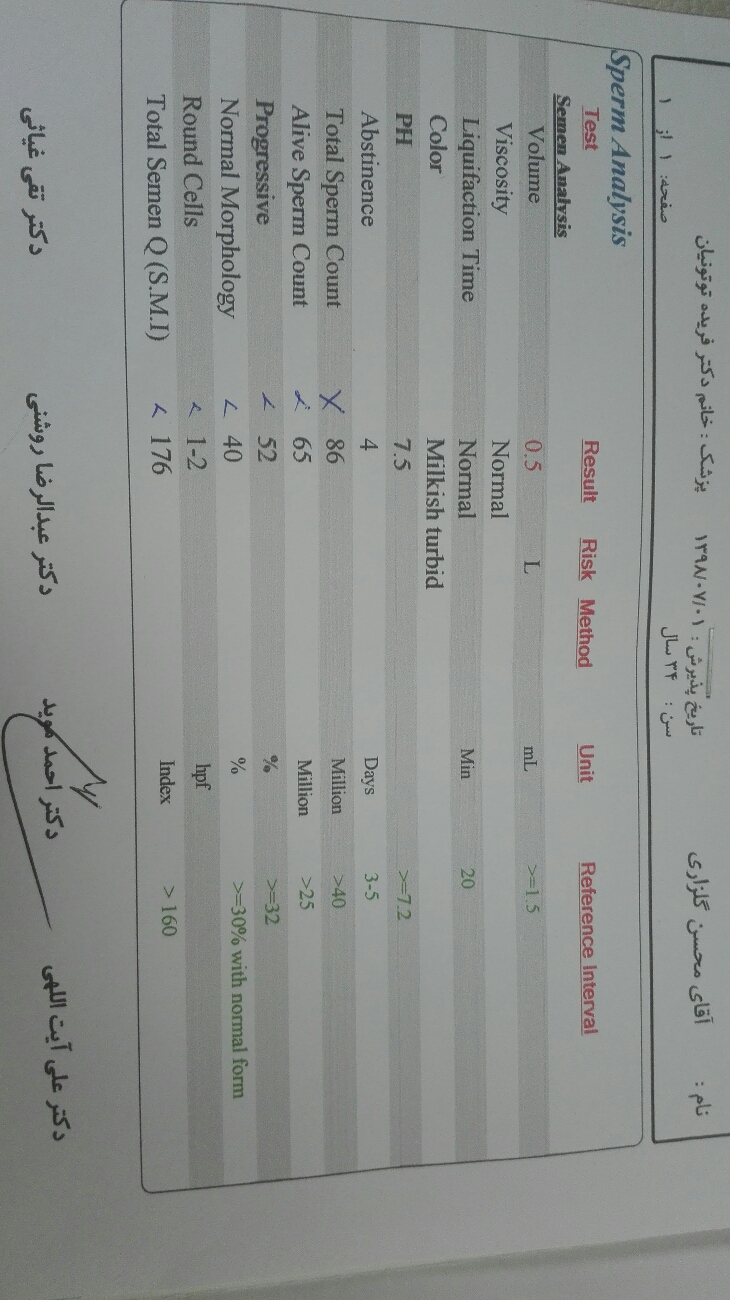 نام : آقای محسن گلزاری تاریخ پذیرش : ۱۳۹۸/۰۷/۰۱ پزشک : خانم دکتر فریده توتونیان
سن : ۳۴ سال صفحه: ۱ از ۱
Sperm Analysis
Test Result Risk Method Unit Reference Interval
Semen Analysis
Volume 0.5 L mL >=1.5
Viscosity Normal
Liquifaction Time Normal Min 20
Color Milkish turbid
PH 7.5 >=7.2
Abstinence 4 Days 3-5
Total Sperm Count 86 Million >40
Alive Sperm Count 65 Million >25
Progressive 52 % >=32
Normal Morphology 40 % >=30% with normal form
Round Cells 1-2 hpf
Total Semen Q (S.M.I) 176 Index >160
دکتر علی آیت اللهی دکتر احمد موید دکتر عبدالرضا روشنی دکتر تقی غیاثی